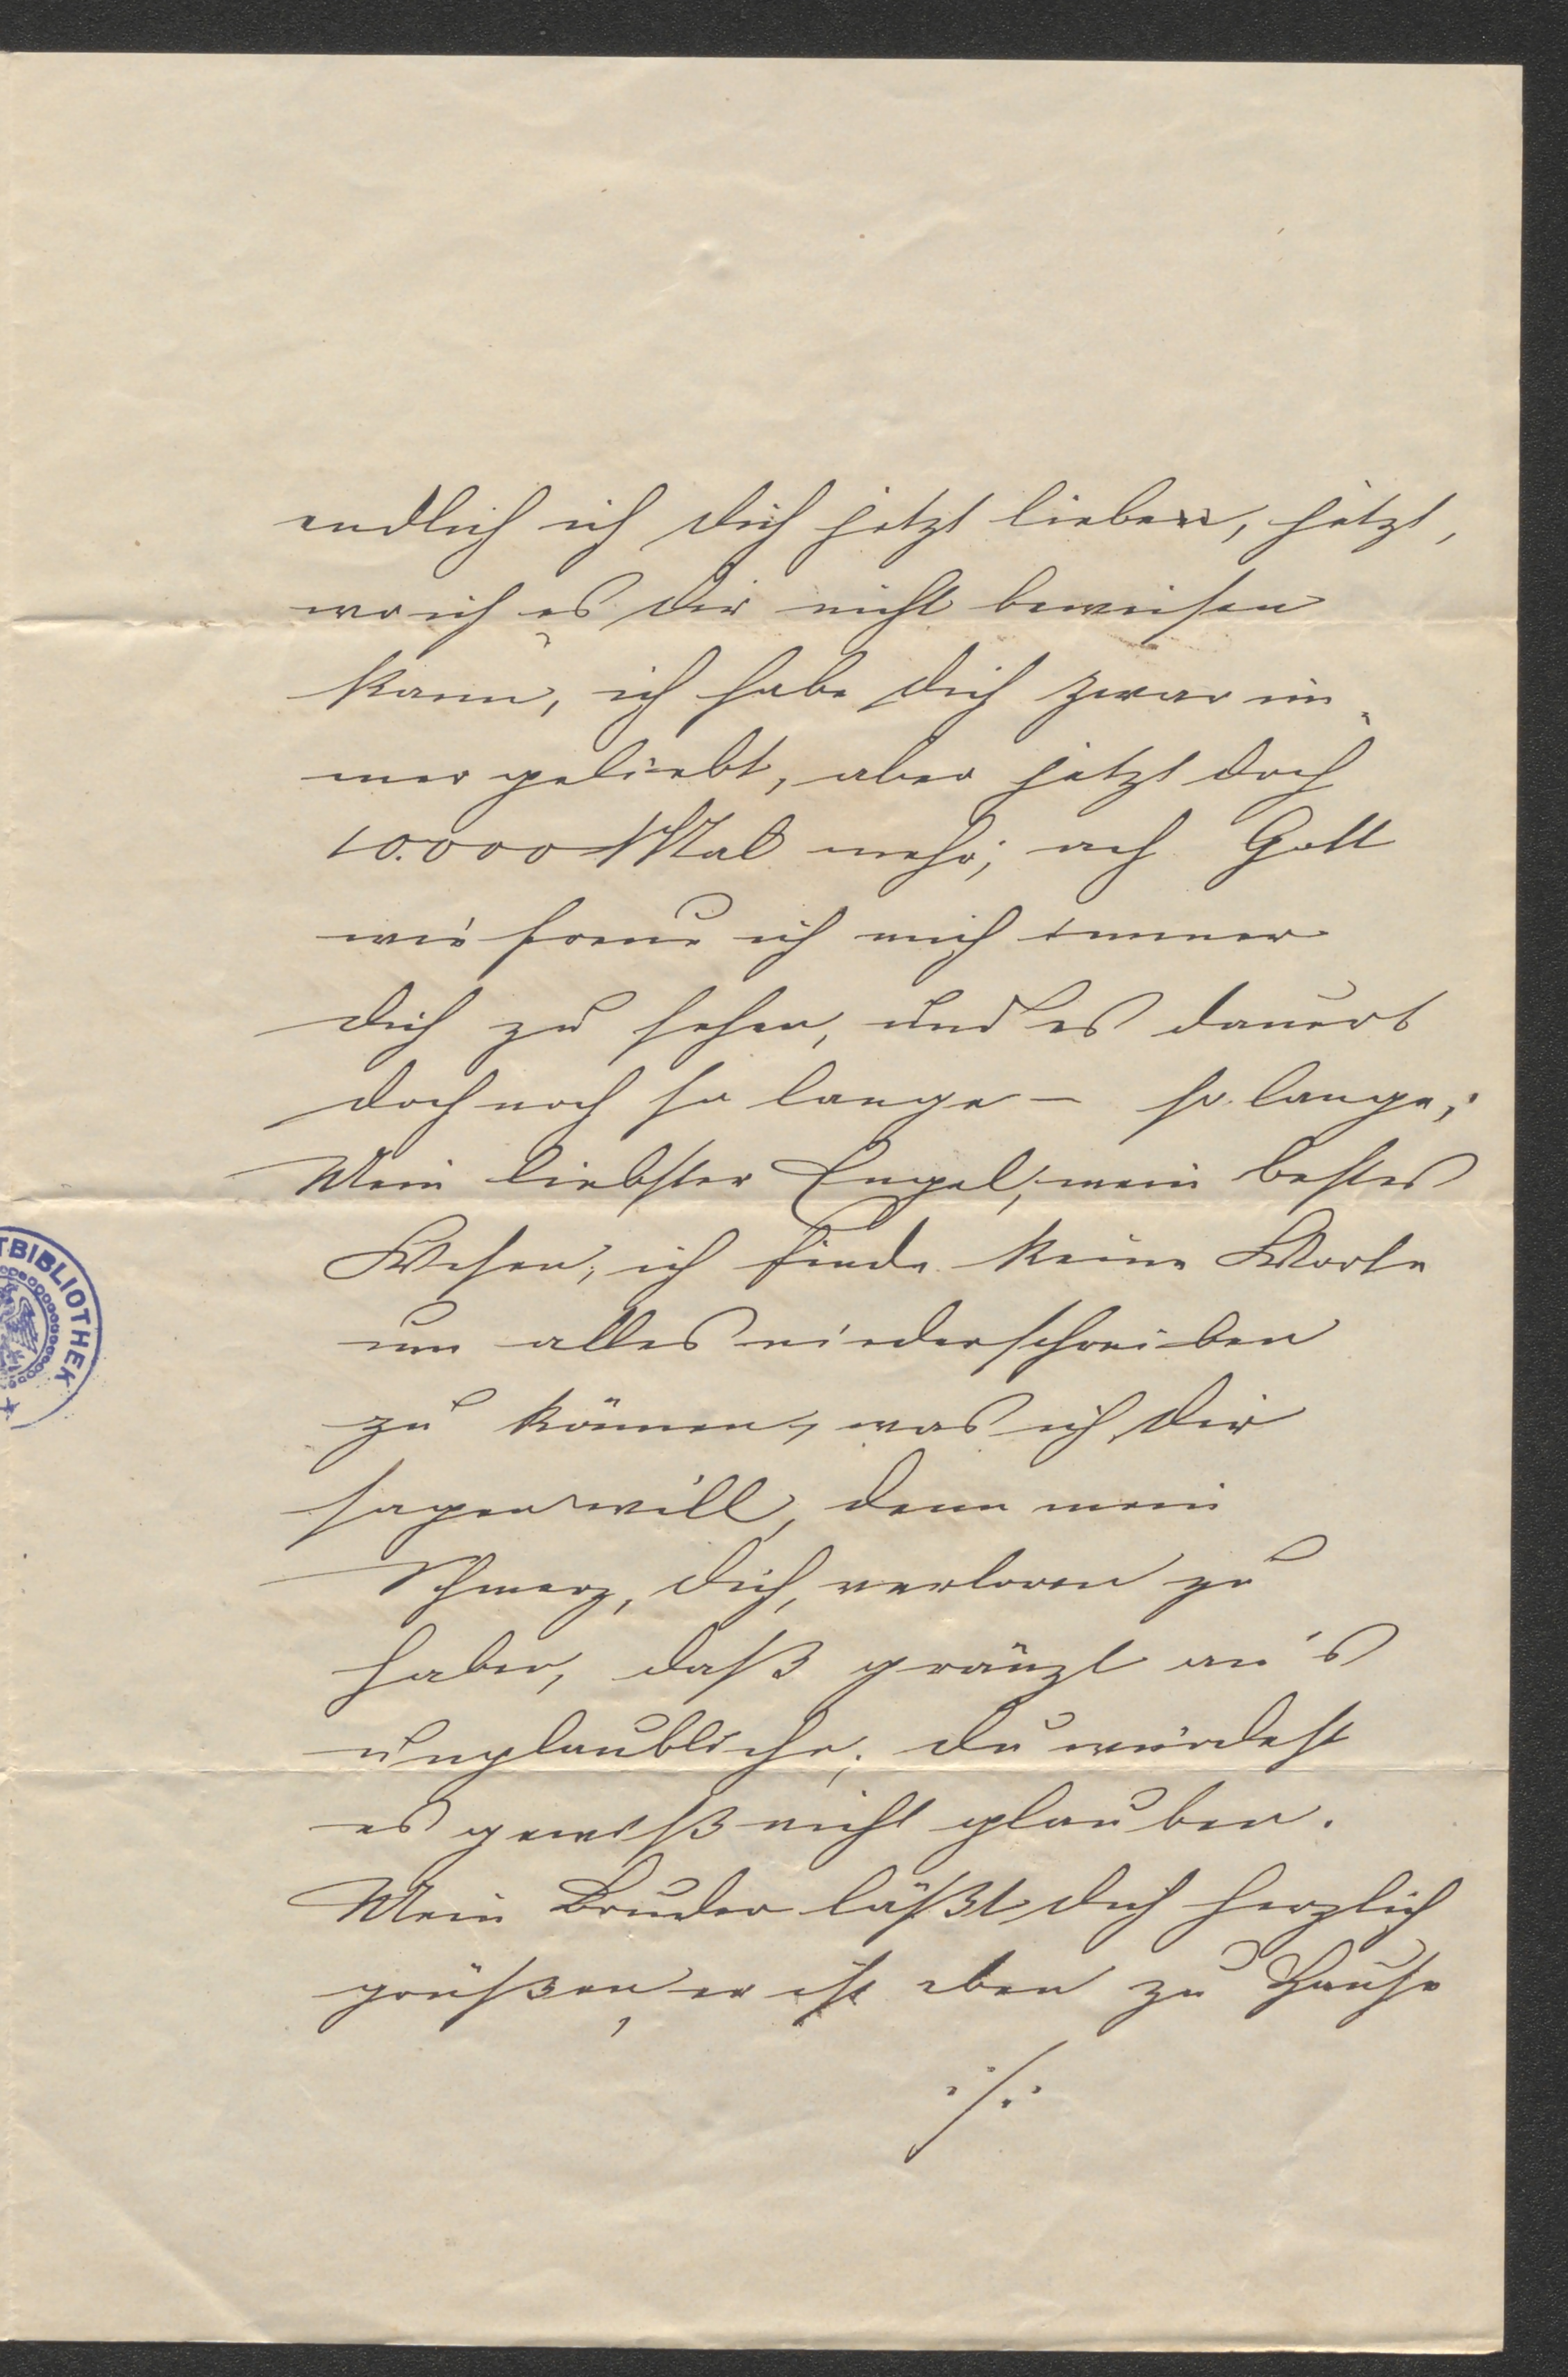 endlich ich dich jetzt liebe, jetzt,
wo ich es dir nicht beweisen
kann, ich habe dich zwar im-
mer geliebt, aber jetzt doch
10.000 Mal mehr; ach Gott
wie freue ich mich immer
dich zu sehen, und es dauert
doch noch so lange – so lange;
Mein liebster Engel, mein bestes
Wesen, ich finde keine Worte
um alles niederschreiben
zu können, was ich dir
sagen will, denn mein
Schmerz, dich, verloren zu
haben, daß gränzt an's
unglaubliche; du würdest
es gewiß nicht glauben.
Mein Bruder läßt dich herzlich
grüßen, er ist eben zu Hause
./.
TBIBLIOTHEK